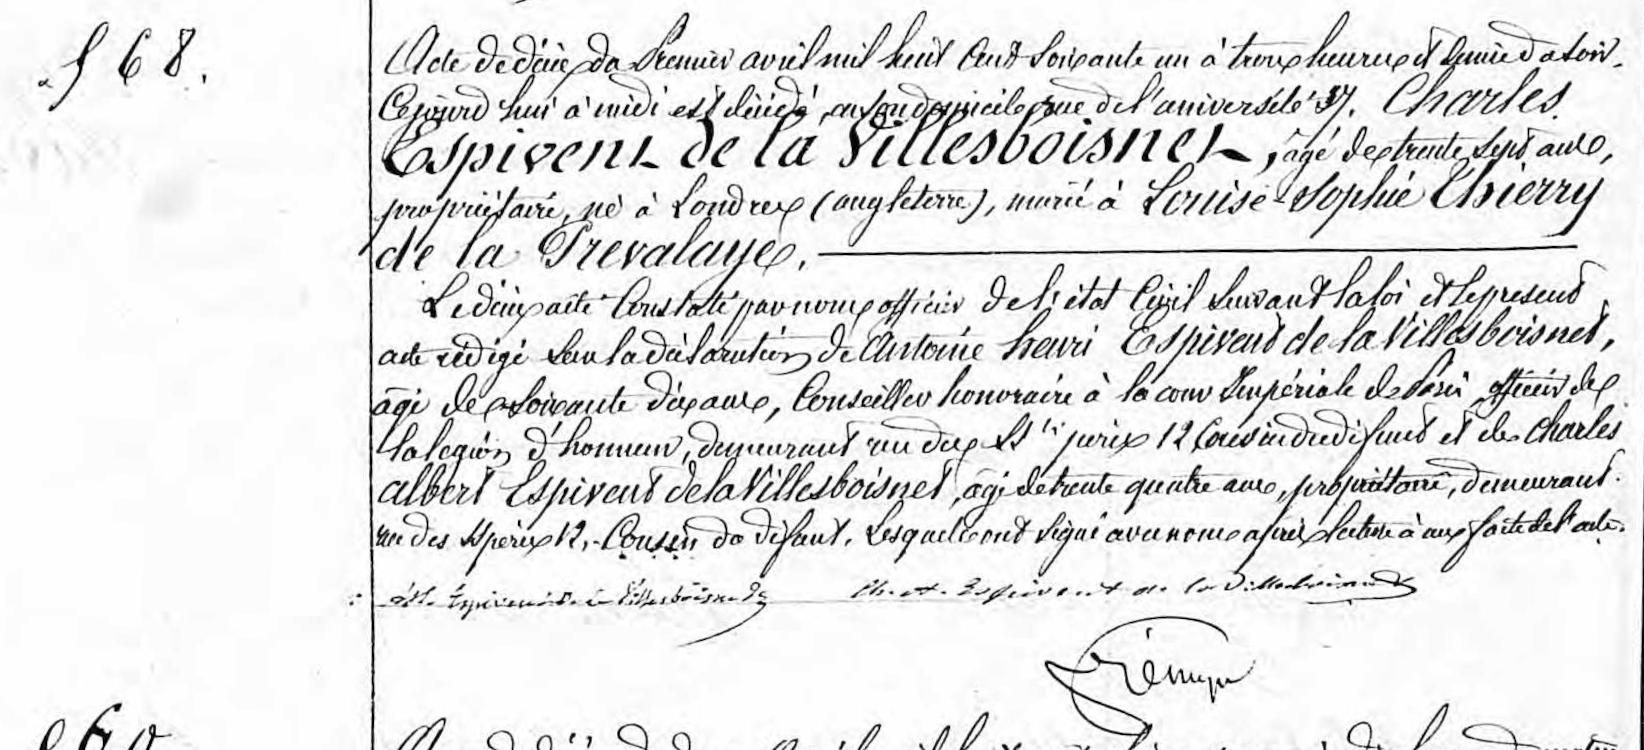 568.
Acte de décès du Premier avril mil huit Cent Soixante un à trois heures et demie du soir.
Cejourd'hui à midi est décédé, en son domicile rue de l'université 37. Charles
Espivent de la Villesboisnet, âgé de trente sept ans,
propriétaire, né à Londres (angleterre), marié à Louise Sophie Thierry
de la Prevalaye.
Le décès a été Constaté par nous officier de l'état Civil suivant la loi et le présent
acte rédigé sur la déclaration de Antoine henri Espivent de la Villesboisnet,
âgé de soixante dix ans, Conseiller honoraire à la cour Impériale de Paris, officier de
la légion d'honneur, demeurant rue des Sts pères 12 Cousin du défunt et de Charles
albert Espivent de la Villesboisnet, âgé de trente quatre ans, propriétaire, demeurant
rue des Sts pères 12, Cousin du défunt. Lesquels ont signé avec nous après lecture à eux faite de l'acte.
Espivent de la Villesboisnet Ch. A. Espivent de la Villesboisnet